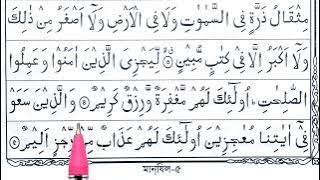 مِثْقَالُ ذَرَّةٍ فِي السَّمٰوٰتِ وَلَا فِي الْاَرْضِ وَلَآ اَصْغَرُ مِنْ ذٰلِكَ
وَلَآ اَكْبَرُ اِلَّا فِيْ كِتٰبٍ مُّبِيْنٍ ۙ لِّيَجْزِيَ الَّذِيْنَ اٰمَنُوْا وَعَمِلُوا
الصّٰلِحٰتِ ؕ اُولٰٓئِكَ لَهُمْ مَّغْفِرَةٌ وَّرِزْقٌ كَرِيْمٌ ۝ وَالَّذِيْنَ سَعَوْ
فِيْٓ اٰيٰتِنَا مُعٰجِزِيْنَ اُولٰٓئِكَ لَهُمْ عَذَابٌ مِّنْ رِّجْزٍ اَلِيْمٌ ۝
মানযিল-৫